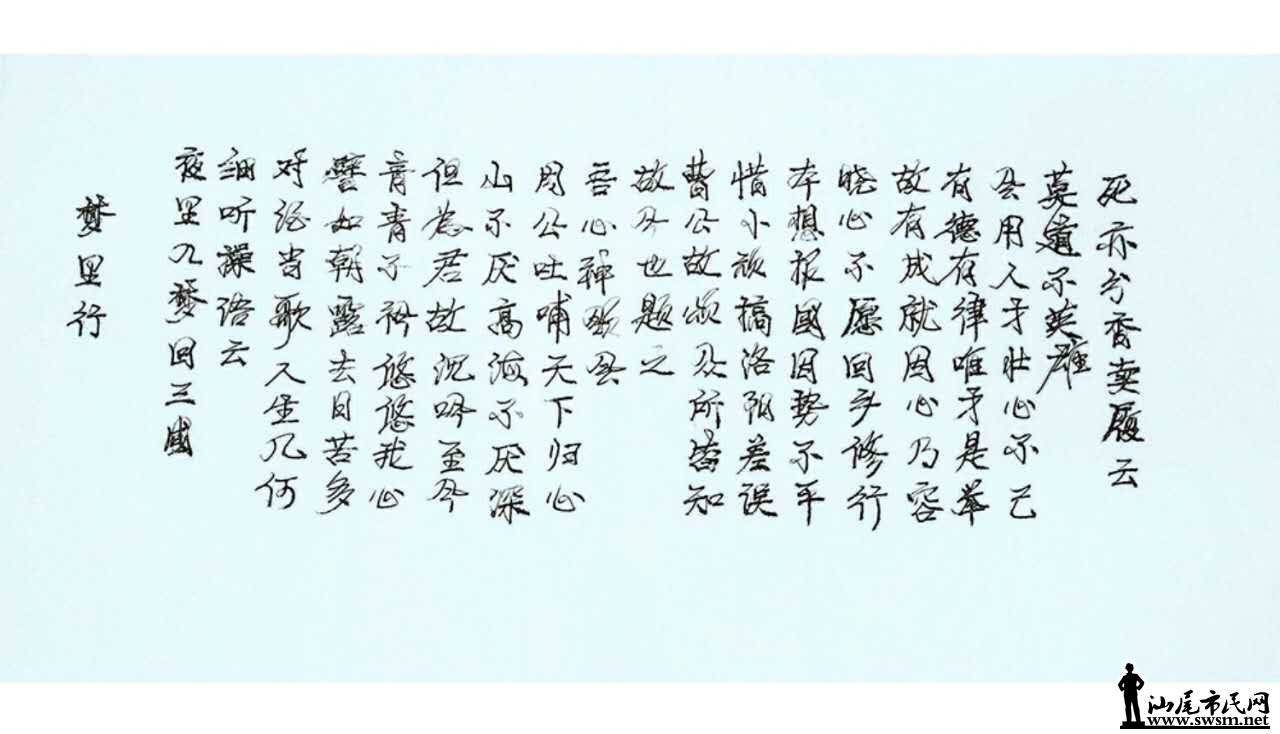 梦里行
夜里入梦回三國
细听语云
对酒当歌人生几何
譬如朝露去日苦多
青青子衿悠悠我心
但为君故沉吟至今
山不厌高海不厌深
周公吐哺天下归心
吾心神
故也题之
曹公故颂众所皆知
惜小顽搞洛阳差误
本想报國因势不平
晓心不愿回乡修行
故有成就因心乃容
有德有律唯才是举
会用人才壮心不已
莫道不英雄
死亦分香卖履云
汕尾市民网
www.swsm.net